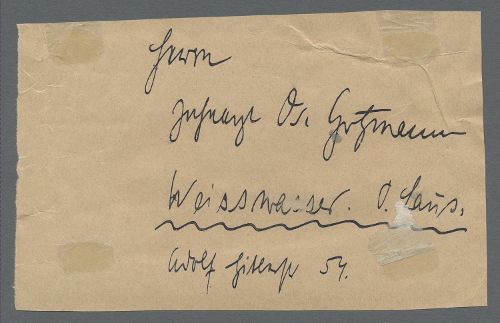 Herrn
Zahnarzt Dr. Gutzmann
Weisswasser. O. Laus.
Adolf Hitlerstr 54.